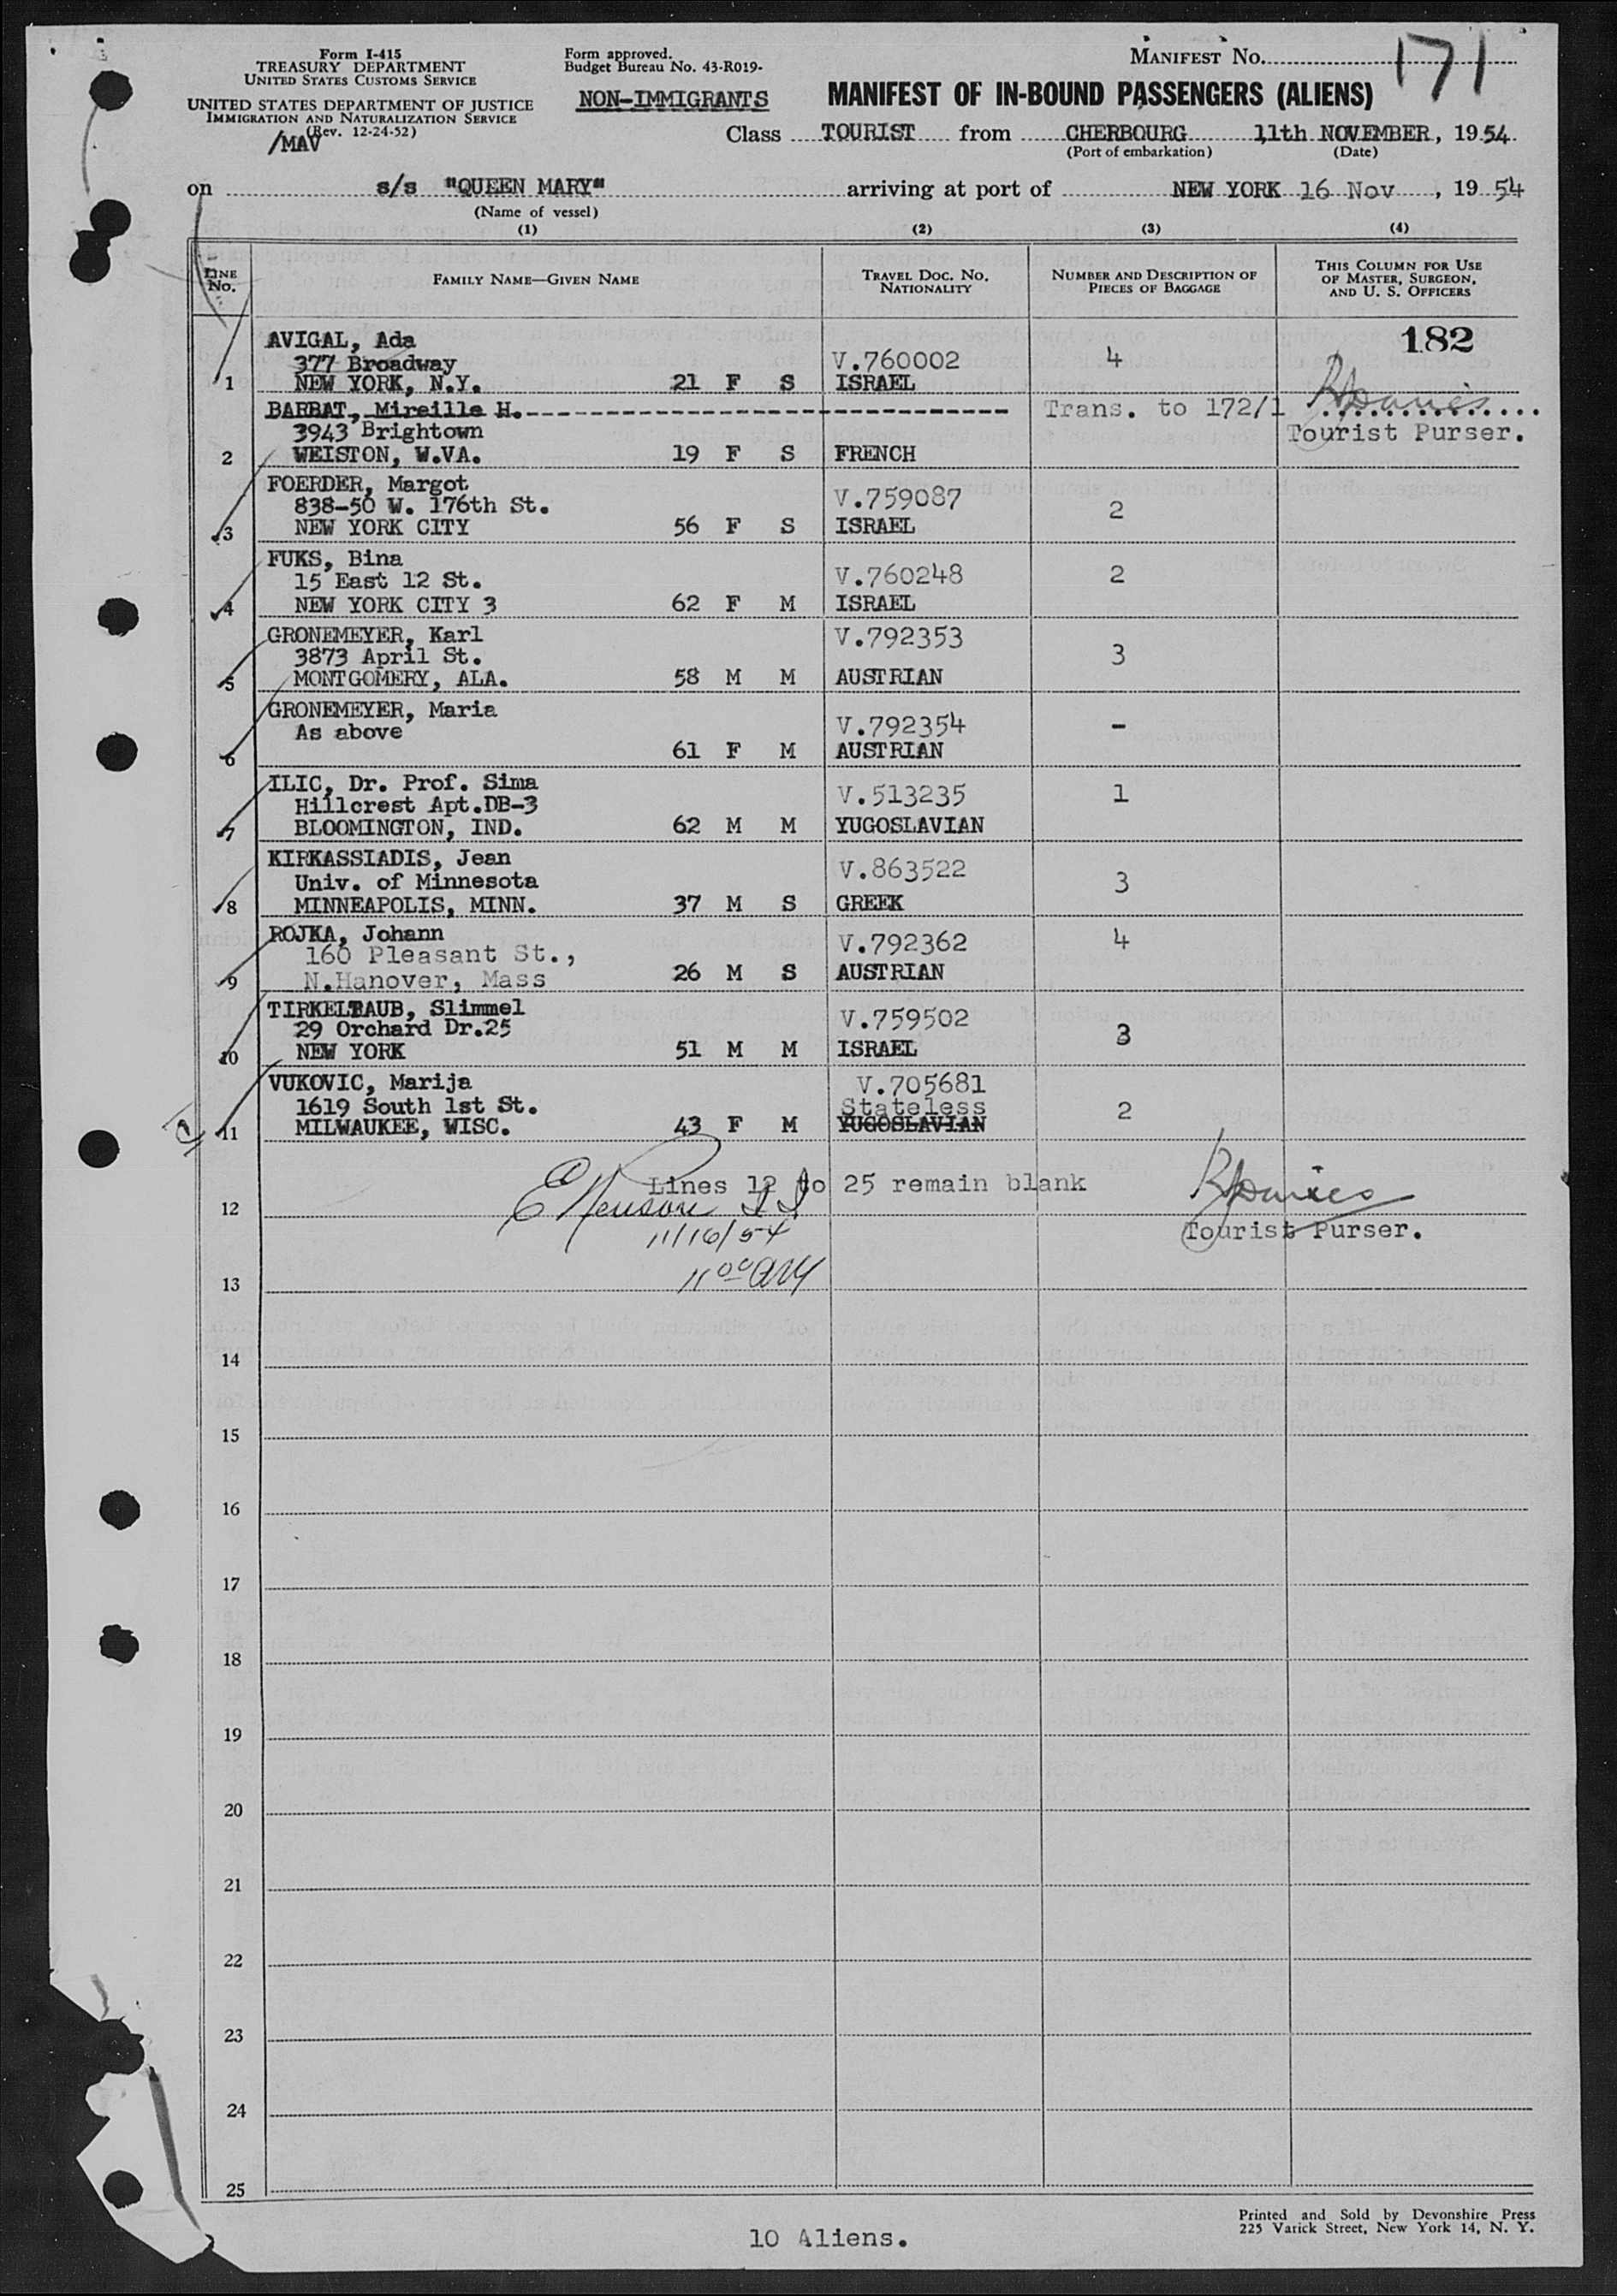 Form I-415
TREASURY DEPARTMENT
UNITED STATES CUSTOMS SERVICE
UNITED STATES DEPARTMENT OF JUSTICE
IMMIGRATION AND NATURALIZATION SERVICE
(Rev. 12-24-52)
/MAV
Form approved.
Budget Bureau No. 43-R019-
NON-IMMIGRANTS
MANIFEST No. 171
MANIFEST OF IN-BOUND PASSENGERS (ALIENS)
Class TOURIST from CHERBOURG 11th NOVEMBER, 1954
(Port of embarkation) (Date)
on s/s "QUEEN MARY" arriving at port of NEW YORK 16 Nov, 1954
(Name of vessel)
(1) (2) (3) (4)
LINE No. FAMILY NAME—GIVEN NAME TRAVEL DOC. NO. NATIONALITY NUMBER AND DESCRIPTION OF PIECES OF BAGGAGE THIS COLUMN FOR USE OF MASTER, SURGEON, AND U. S. OFFICERS
182
AVIGAL, Ada
377 Broadway V.760002 4
1 NEW YORK, N.Y. 21 F S ISRAEL
BARBAT, Mireille H.---------- Trans. to 172/1
3943 Brightown Tourist Purser.
2 WEISTON, W.VA. 19 F S FRENCH
FOERDER, Margot
838-50 W. 176th St. V.759087 2
3 NEW YORK CITY 56 F S ISRAEL
FUKS, Bina
15 East 12 St. V.760248 2
4 NEW YORK CITY 3 62 F M ISRAEL
GRONEMEYER, Karl V.792353
3873 April St. 3
5 MONTGOMERY, ALA. 58 M M AUSTRIAN
GRONEMEYER, Maria
As above V.792354 -
6 61 F M AUSTRIAN
ILIC, Dr. Prof. Sima
Hillcrest Apt.DB-3 V.513235 1
7 BLOOMINGTON, IND. 62 M M YUGOSLAVIAN
KIRKASSIADIS, Jean
Univ. of Minnesota V.863522 3
8 MINNEAPOLIS, MINN. 37 M S GREEK
ROJKA, Johann
160 Pleasant St., V.792362 4
9 N.Hanover, Mass 26 M S AUSTRIAN
TIRKELTAUB, Slimmel
29 Orchard Dr.25 V.759502 3
10 NEW YORK 51 M M ISRAEL
VUKOVIC, Marija V.705681
1619 South 1st St. Stateless 2
11 MILWAUKEE, WISC. 43 F M YUGOSLAVIAN
Lines 12 to 25 remain blank
12
Tourist Purser.
11/16/54
11 00 AM
13
14
15
16
17
18
19
20
21
22
23
24
25
Printed and Sold by Devonshire Press
225 Varick Street, New York 14, N. Y.
10 Aliens.